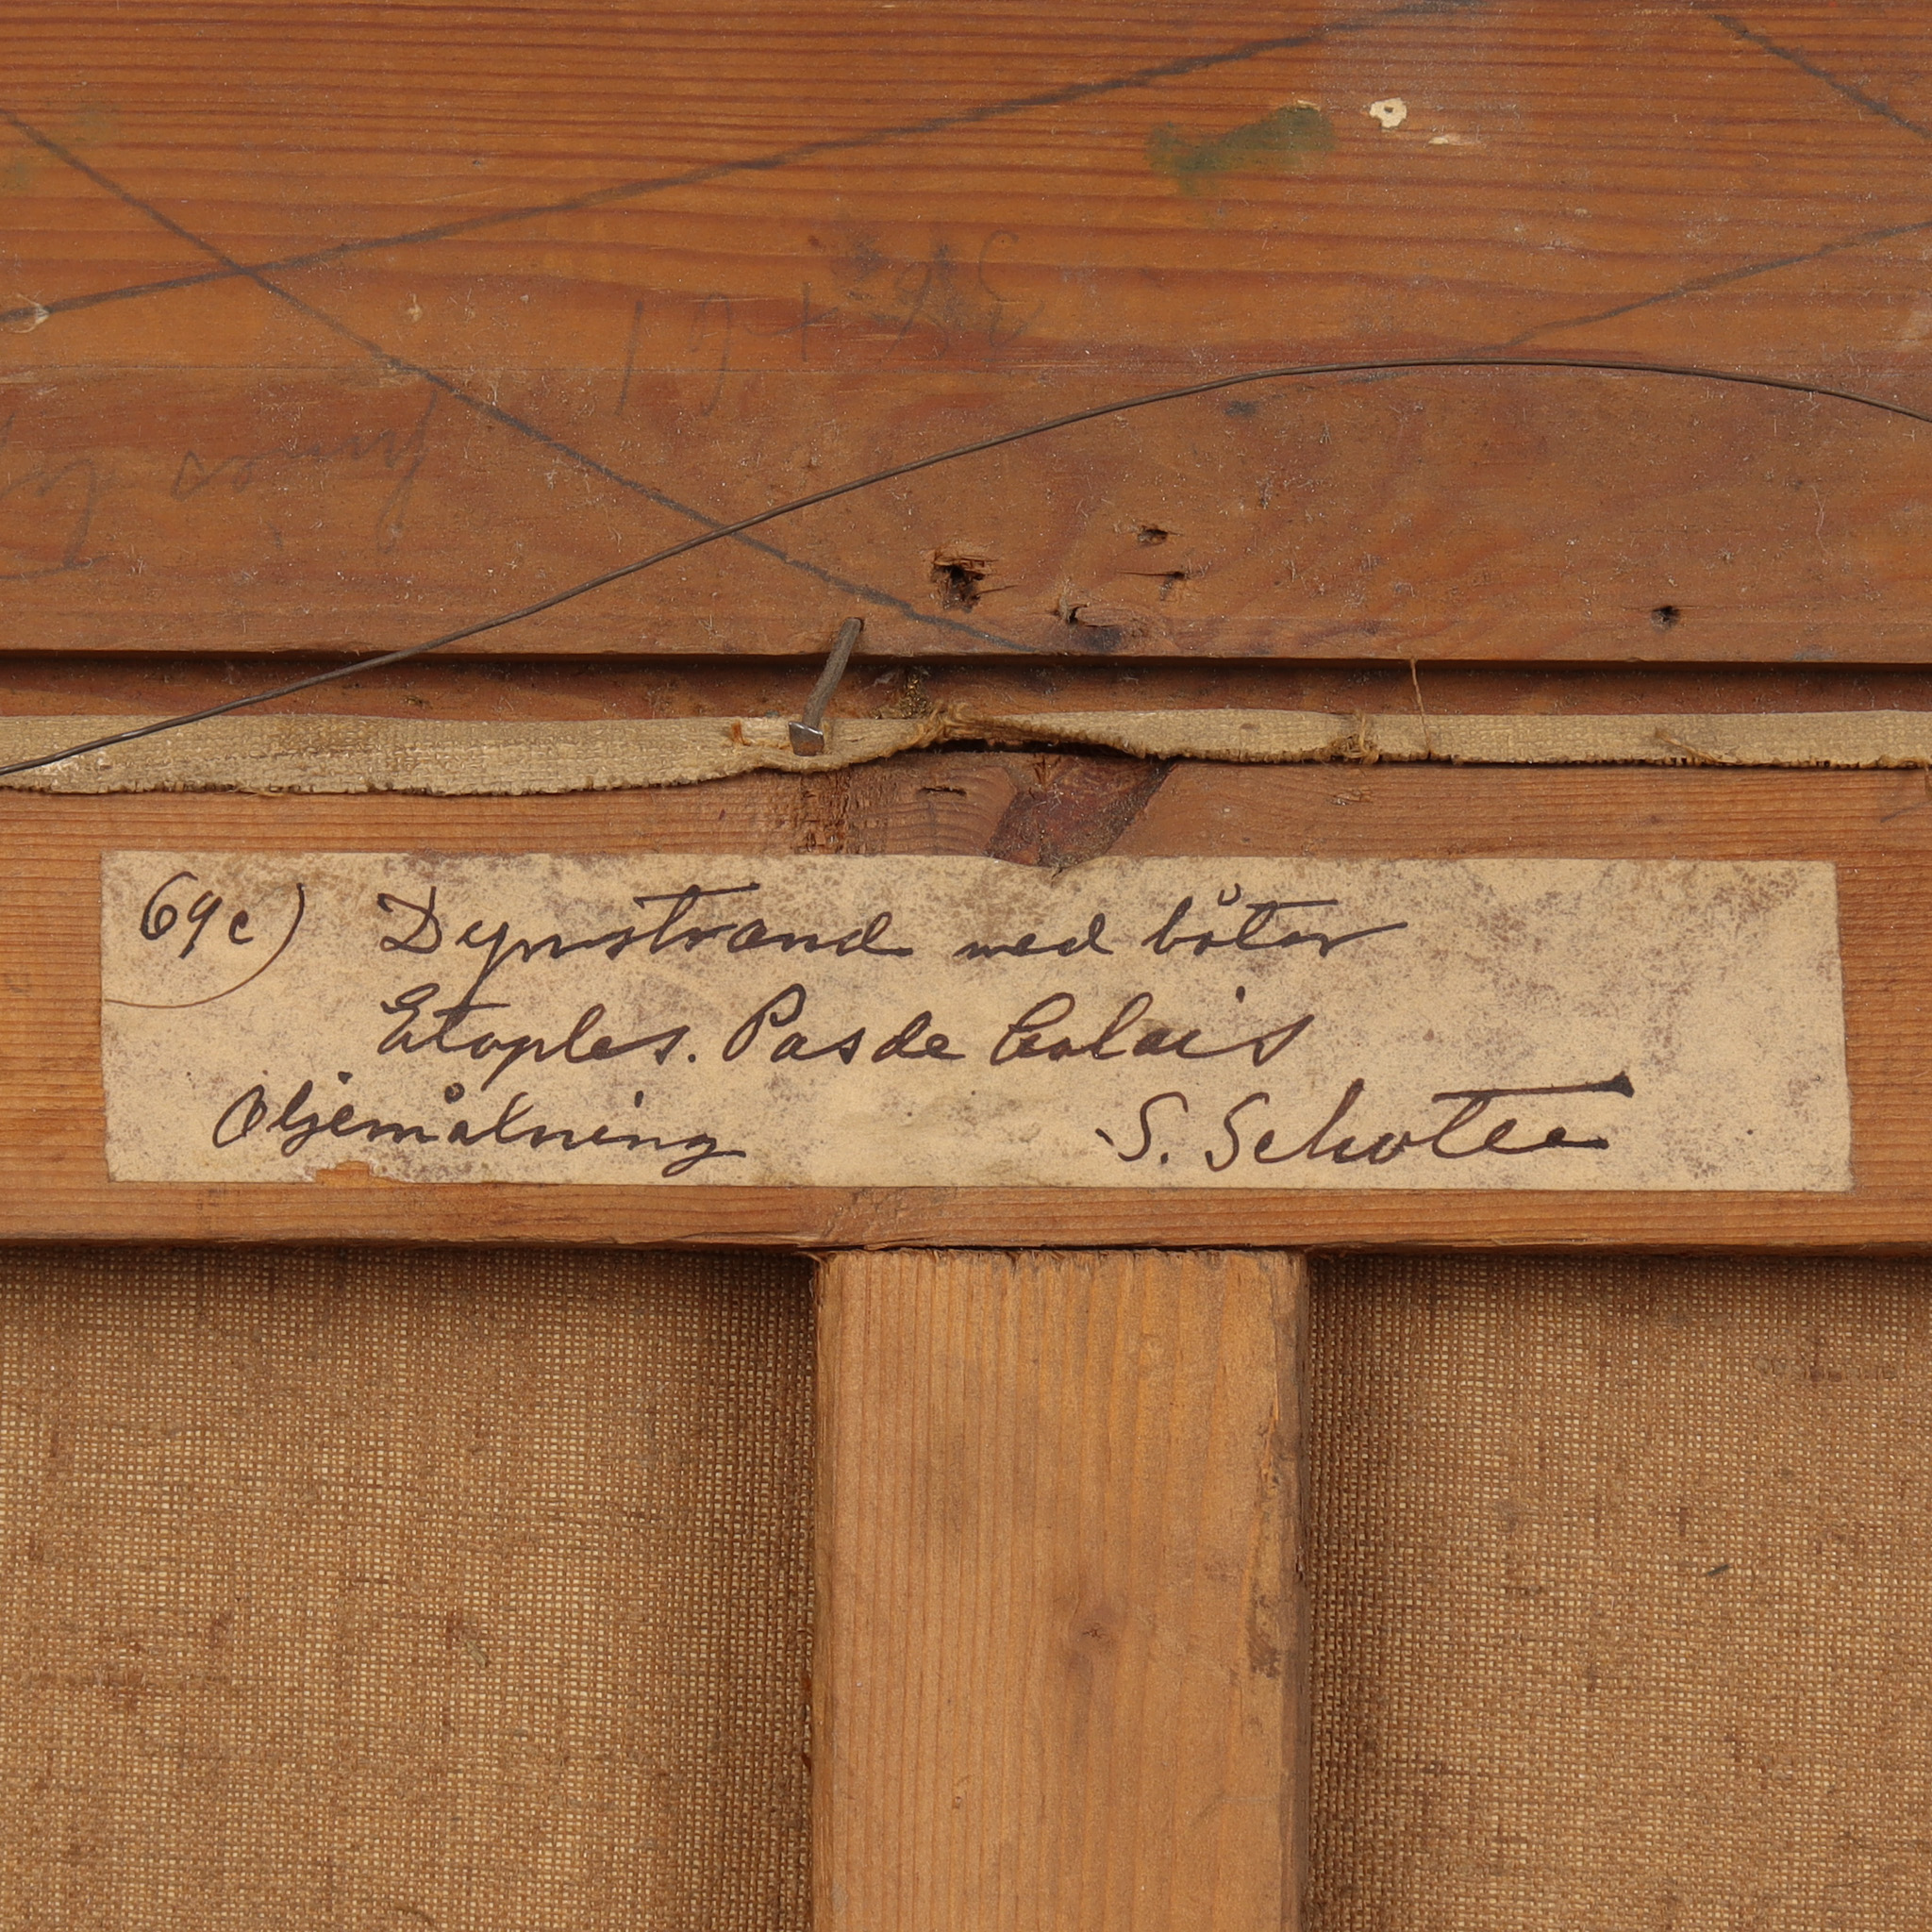 69c) Dynstrand med båtar
Etaples. Pas de Calais
Oljemålning S. Schotte